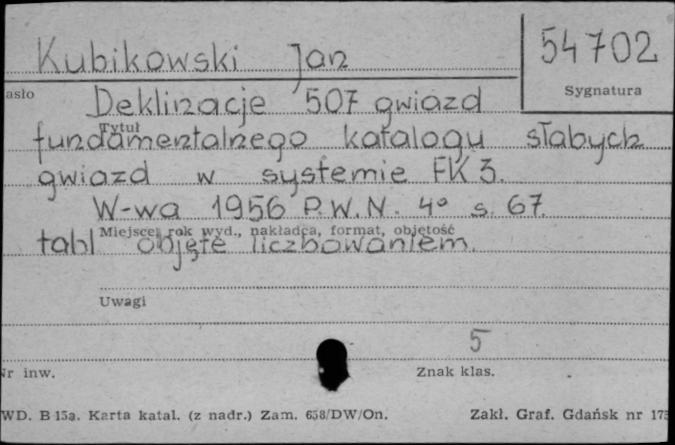 Kubikowski Jan
54702
asło
Sygnatura
Deklinacje 507 gwiazd
Tytuł
fundamentalnego katalogu słabych
gwiazd w systemie FK3.
W-wa 1956 P.W.N. 4° s. 67.
Miejsce, rok wyd., nakładca, format, objętość
tabl objęte liczbowaniem.
Uwagi
5
Nr inw.
Znak klas.
WD. B 15a. Karta katal. (z nadr.) Zam. 658/DW/On.
Zakł. Graf. Gdańsk nr 175